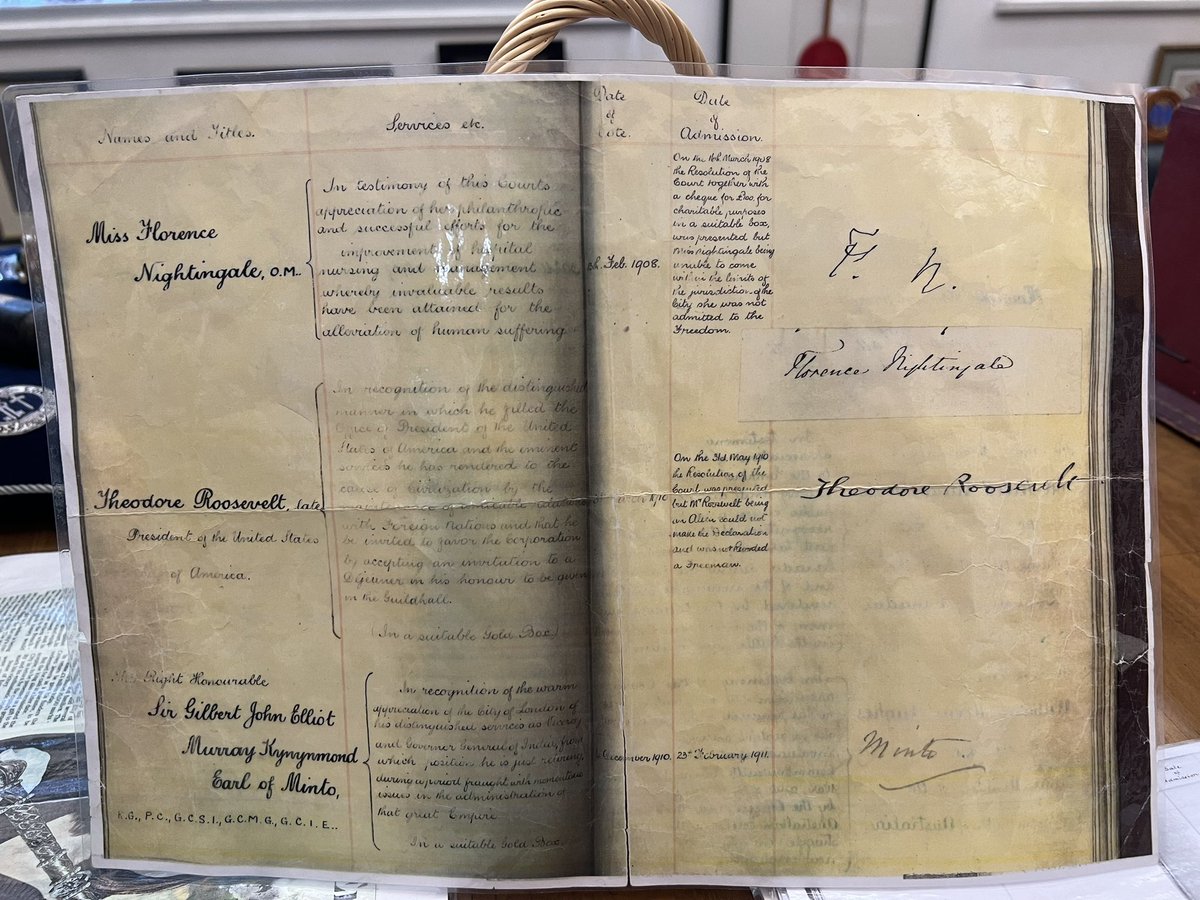 Names and Titles.
Services etc.
Date
of
Date
of
Admission.
Miss Florence
Nightingale, O.M..
In testimony of this Courts
appreciation of her philanthropic
and successful efforts for the
improvement of hospital
nursing and management
whereby invaluable results
have been attained for the
alleviation of human suffering
Feb. 1908.
On the March 1908
the Resolution of the
Court together with
a cheque for for
charitable purposes
in a suitable box,
was presented but
Miss Nightingale being
unable to come
within the limits of
the jurisdiction of the
City she was not
admitted to the
Freedom.
F. N.
Florence Nightingale
Theodore Roosevelt, late
President of the United States
of America.
In recognition of the distinguished
manner in which he filled the
Office of President of the United
States of America and the eminent
services he has rendered to the
cause of Civilization by the
maintenance of amicable relations
with Foreign Nations and that he
be invited to favor the Corporation
by accepting an invitation to a
Déjeuner in his honour to be given
in the Guildhall.
(In a suitable Gold Box)
On the 31st. May 1910
the Resolution of the
Court was presented
but Mr. Roosevelt being
an Alien could not
make the Declaration
and was not
a Freeman.
Theodore Roosevelt
Right Honourable
Sir Gilbert John Elliot
Murray Kynynmond
Earl of Minto,
K.G., P.C., G.C.S.I., G.C.M.G., G.C.I.E..
In recognition of the warm
appreciation of the City of London of
his distinguished services as Viceroy
and Governor General of India, from
which position he is just retiring,
during a period fraught with momentous
issues in the administration of
that great Empire
In a suitable Gold Box.
December 1910.
23rd February 1911.
Minto